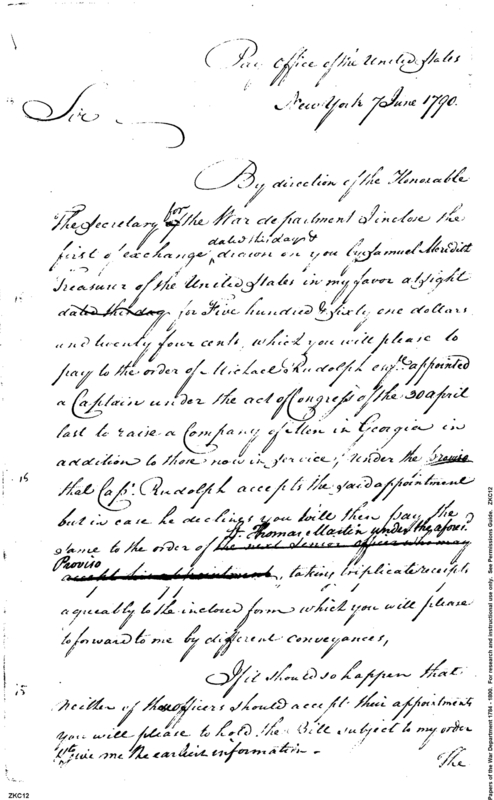 Pay Office of the United States
New York 7 June 1790.
Sir
By direction of the Honorable
The Secretary for the War department I inclose the
first of exchange, dated this day & drawn on you by Samuel Meredith
Treasurer of the United States in my favor at sight
dated this day for Five hundred & sixty one dollars
and twenty four cents, which you will please to
pay to the order of Michael Rudolph esqr. appointed
a Captain under the act of Congress of the 30 april
last to raise a Company of Men in Georgia in
addition to those now in service, under the proviso
that Capt. Rudolph accepts the said appointment
but in case he declines you will then pay the
same to the order of the next senior officer who may Thomas Martin under the aforesd
Proviso accept his appointment, taking triplicate receipts
agreeably to the inclosed form which you will please
to forward to me by different conveyances,
If it should so happen that
neither of those officers should accept their appointments
you will please to hold the Bill subject to my order
give me the earliest information -
The
15
15
ZKC12
Papers of the War Department 1784 - 1800. For research and instructional use only. See Permissions Guide. ZKC12